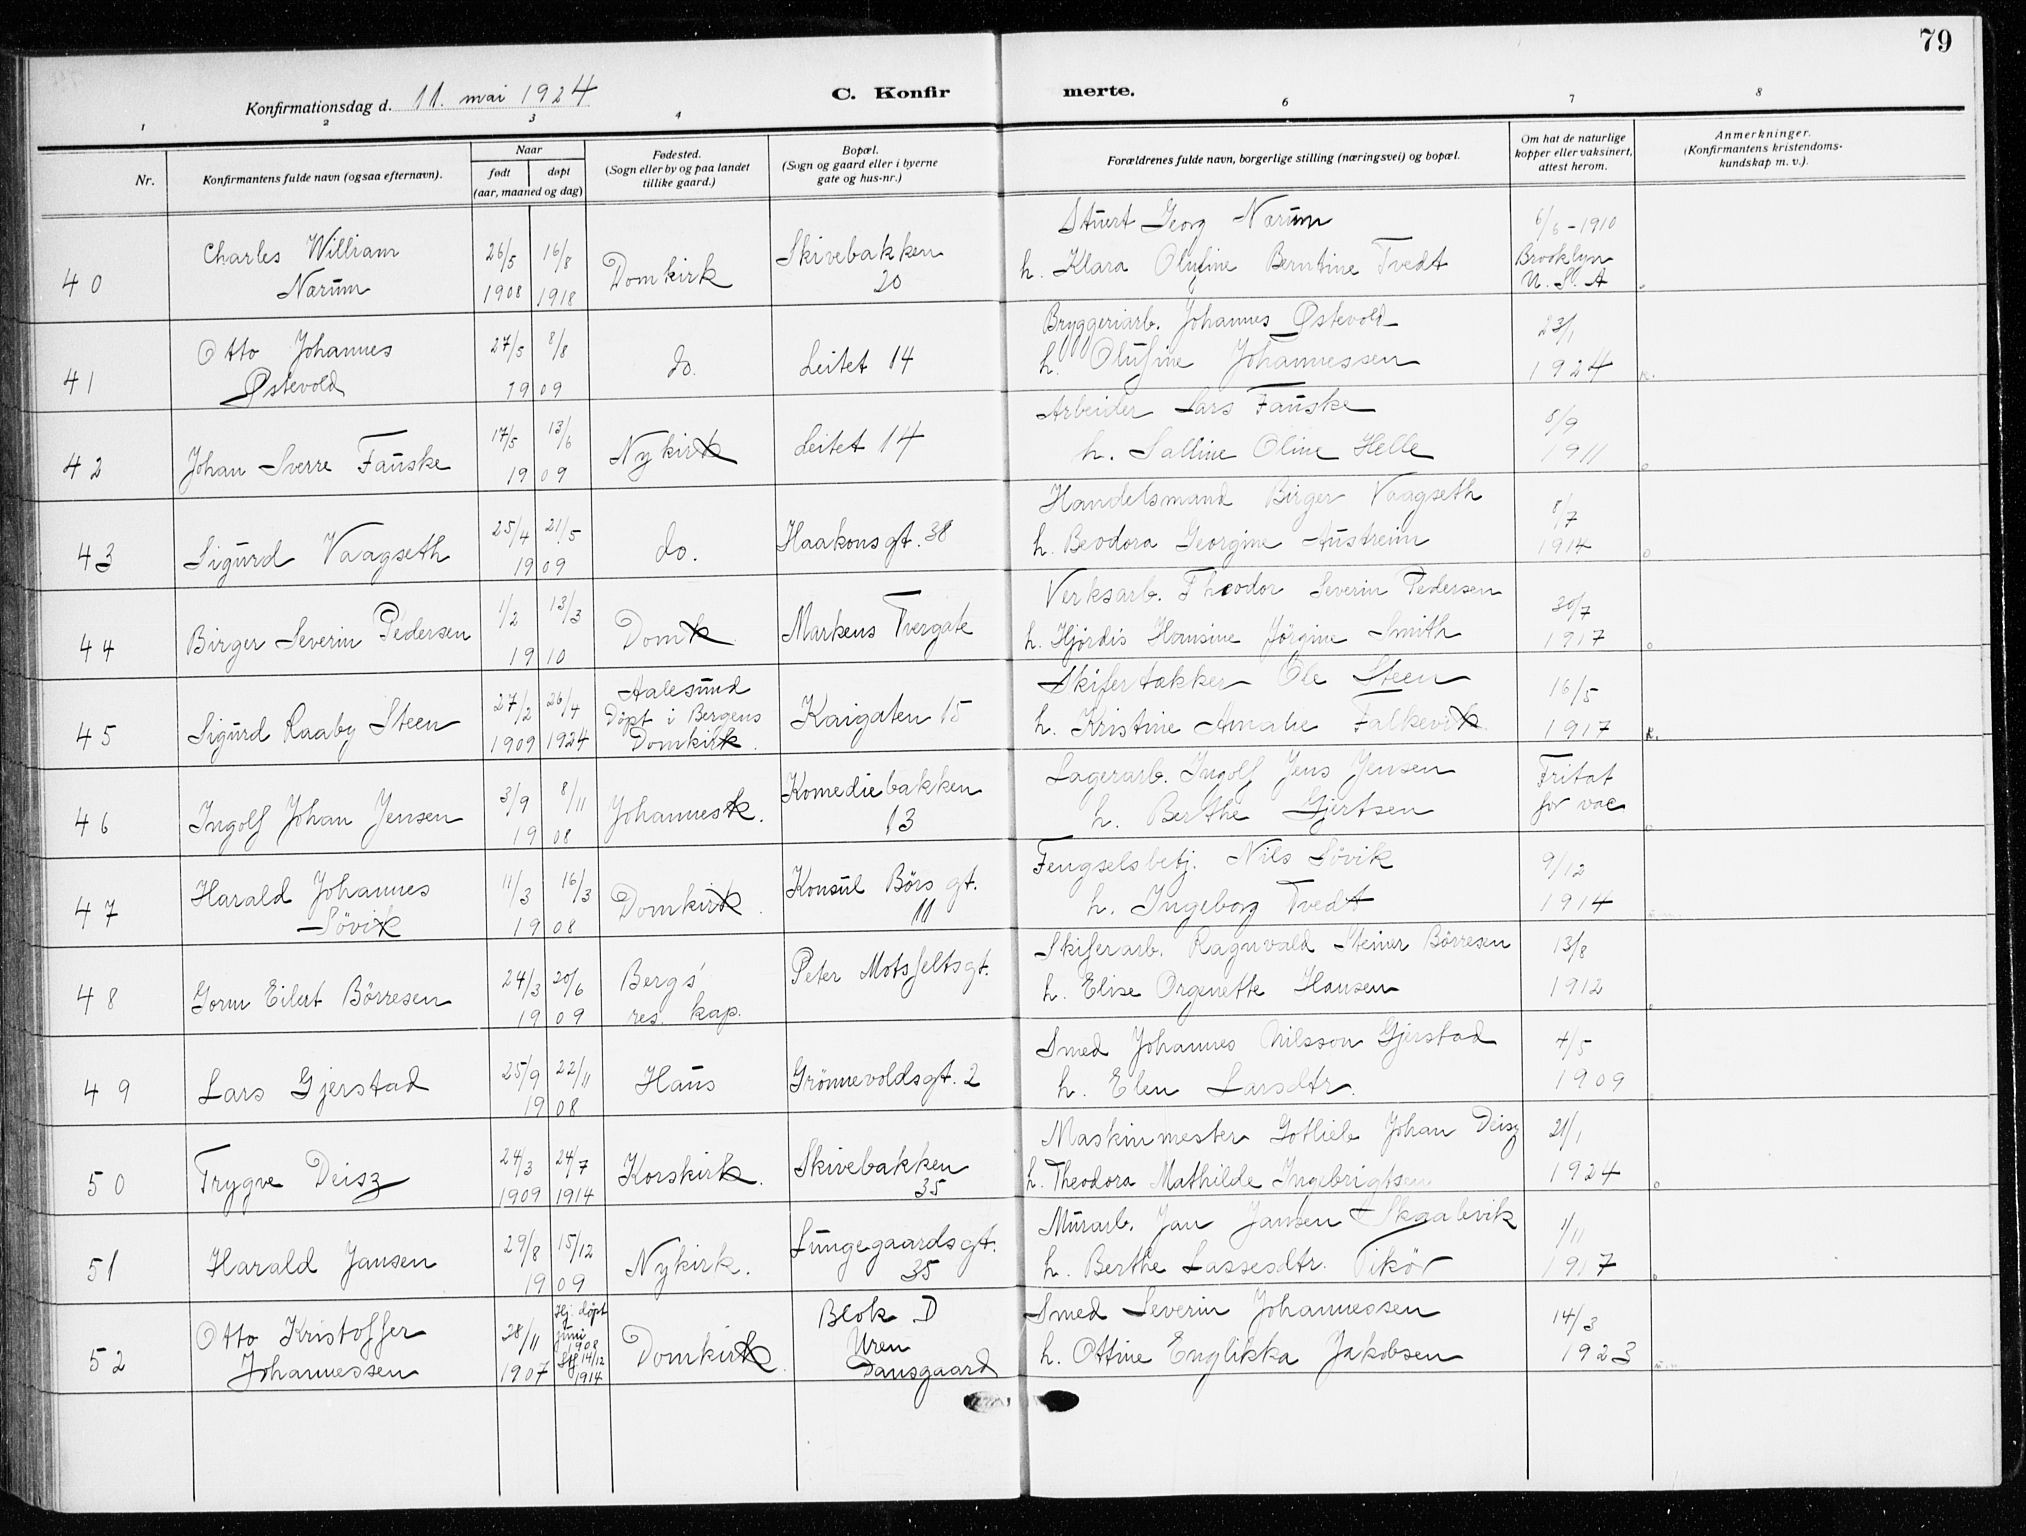 79
Konfirmationsdag d. 11. mai 1924
C. Konfirmerte.
1 2 3 4 6 7 8
Nr.
Konfirmantens fulde navn (ogsaa efternavn).
Naar
født døpt
(aar, maaned og dag)
Fødested.
(Sogn eller by og paa landet
tillike gaard.)
Bopæl.
(Sogn og gaard eller i byerne
gate og hus-nr.)
Forældrenes fulde navn, borgerlige stilling (næringsvei) og bopæl.
Om hat de naturlige
kopper eller vaksinert,
attest herom.
Anmerkninger.
(Konfirmantens kristendoms-
kundskap m. v.).
40
Charles William
Nærum
26/5 1908
16/8 1918
Domkirk
Skivebakken
20
Stuert Georg Nærum
h. Klara Olufine Berntine Tvedt
6/6 - 1910
Brooklyn
U. S. A
41
Otto Johannes
Østevold
27/5 8/8
1909
do.
Leitet 14
Bryggeriarb. Johannes Østevold
h. Olufine Johannessen
23/1
1924
42
Johan Sverre Fauske
17/5 13/6
1909
Nykirk
Leitet 14
Arbeider Lars Fauske
h. Salline Oline Helle
8/9
1911
43
Sigurd Vaagseth
25/4 21/5
1909
do.
Haakonsgt. 38
Handelsmand Birger Vaagseth
h. Beodora Georgine Austreim
8/7
1914
44
Birger Severin Pedersen
1/2 13/3
1910
Domk
Markens Tvergate
Verksarb. Theodor Severin Pedersen
h. Hjørdis Hansine Jørgine Smith
30/7
1917
45
Sigurd Raaby Steen
27/2 1909
26/4 1924
Aalesund
Døpt i Bergens
Domkirk.
Kaigaten 15
Skifertækker Ole Steen
h. Kristine Amalie Falkevik
16/5
1917
46
Ingolf Johan Jensen
3/9 8/11
1908
Johannesk.
Komediebakken
13
Lagerarb. Ingolf Jens Jensen
h. Berthe Gjertsen
Fritat
for vac
47
Harald Johannes
Søvik
11/3 16/3
1908
Domkirk.
Konsul Børs gt.
11
Fengselsbetj. Nils Søvik
h. Ingeborg Tvedt
9/12
1914
48
Gorm Eilert Börresen
24/3 20/6
1909
Bergs'
res. kap.
Peter Motsfeltsgt.
Skiferarb. Ragnvald Steiner Börresen
h. Elise Orgenette Hansen
13/8
1912
49
Lars Gjerstad
25/9 22/11
1908
Haus
Grönnevoldsgt. 2
Smed Johannes Nilsson Gjerstad
h. Elen Larsdtr.
4/5
1909
50
Trygve Deisz
24/3 1909
24/7 1914
Korskirk.
Skivebakken
35
Maskinmester Gotlieb Johan Deisz
h. Theodora Mathilde Ingebrigtsen
21/1
1924
51
Harald Jansen
29/8 15/12
1909
Nykirk.
Lungegaardsgt.
35
Murarb. Jan Jansen Skaalevik
h. Berthe Lassesdtr. Tikör
1/11
1917
52
Otto Kristoffer
Johannessen
28/11 1907
Hj. døpt
juni
1908
Stf 14/12
1914
Domkirk.
Blok D
Uren
Dansgaard
Smed Severin Johannessen
h. Ottine Englikka Jakobsen
14/3
1923